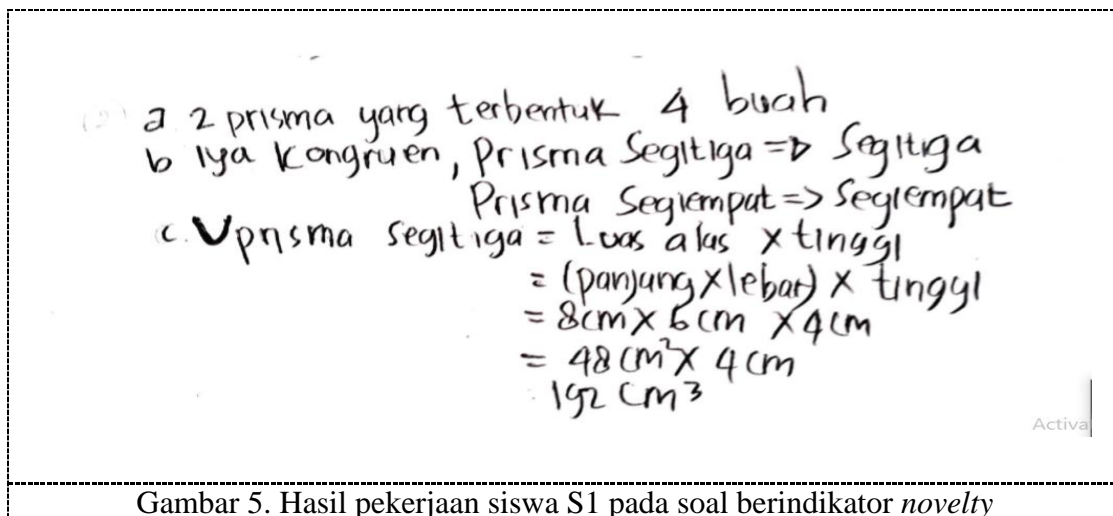 a 2 prisma yang terbentuk 4 buah
b Iya kongruen, Prisma Segitiga => Segitiga
Prisma Segiempat => Segiempat
c. Vprisma segitiga = Luas alas x tinggi
= (panjang x lebar) x tinggi
= 8cm x 6cm x 4cm
= 48 cm² x 4cm
192 cm³
Activa
Gambar 5. Hasil pekerjaan siswa S1 pada soal berindikator novelty